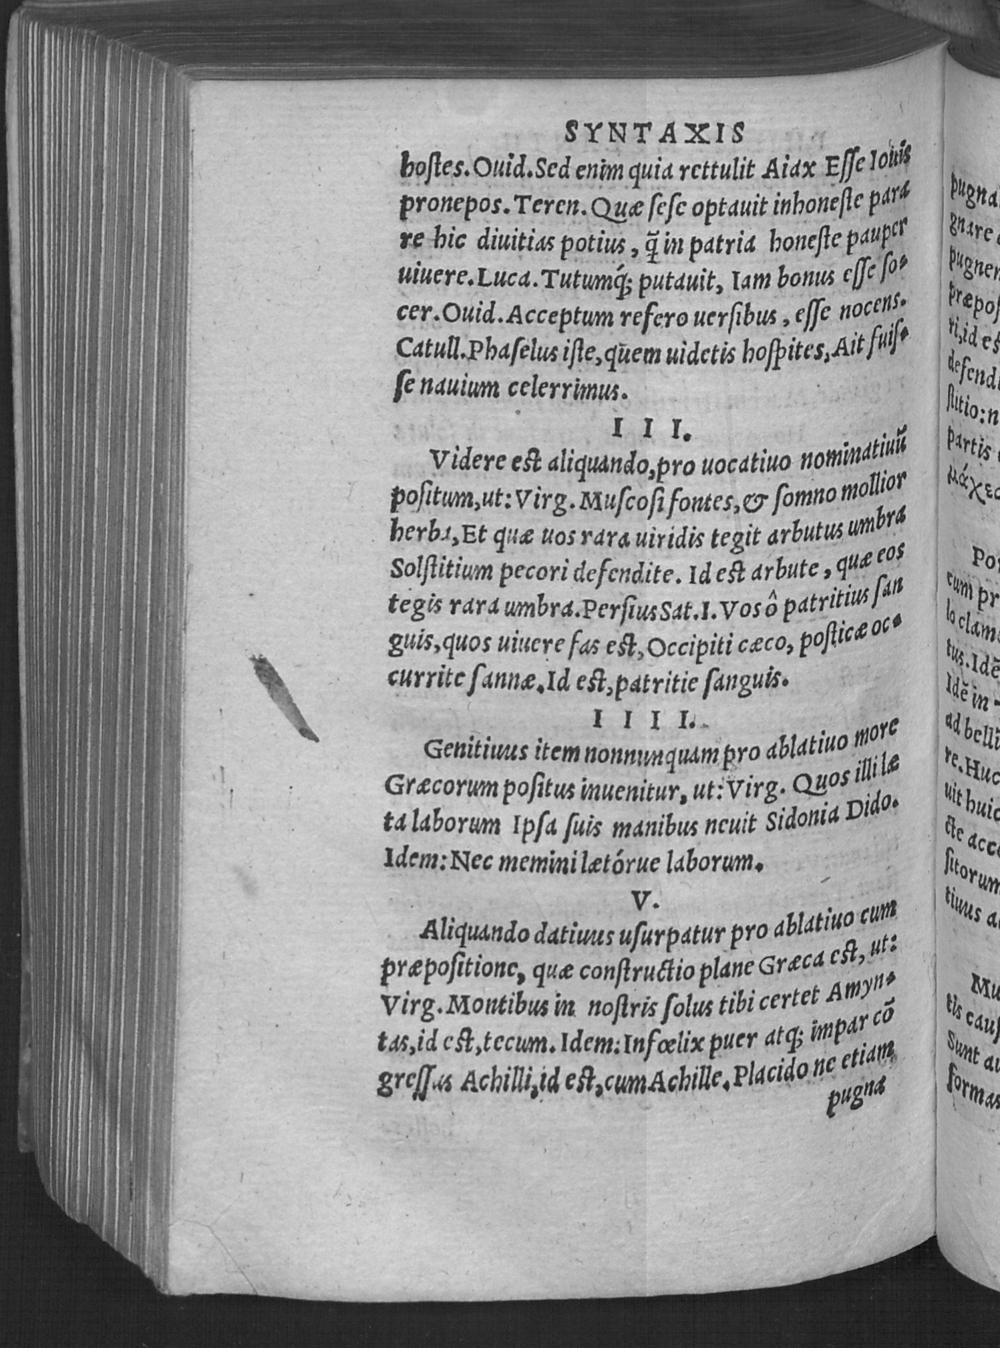 SYNTAXIS
hostes. Ouid. Sed enim quia rettulit Aiax Esse Iouis
pronepos. Teren. Quæ sese optauit inhoneste para
re hic diuitias potius, q̃ in patria honeste pauper
uiuere. Luca. Tutumq́; putauit, Iam bonus esse so-
cer. Ouid. Acceptum refero uersibus, esse nocens.
Catull. Phaselus iste, quem uidetis hospites, Ait fuis-
se nauium celerrimus.
I I I.
Videre est aliquando, pro uocatiuo nominatiuū
positum, ut: Virg. Muscosi fontes, & somno mollior
herba, Et quæ uos rara uiridis tegit arbutus umbra
Solstitium pecori defendite. Id est arbute, quæ eos
tegis rara umbra. Persius Sat. I. Vos ô patritius san
guis, quos uiuere fas est, Occipiti cæco, posticæ oc-
currite sannæ. Id est, patritie sanguis.
I I I I.
Genitiuus item nonnunquam pro ablatiuo more
Græcorum positus inuenitur, ut: Virg. Quos illi læ
ta laborum Ipsa suis manibus neuit Sidonia Dido.
Idem: Nec memini lætórue laborum.
V.
Aliquando datiuus usurpatur pro ablatiuo cum
præpositione, quæ constructio plane Græca est, ut:
Virg. Montibus in nostris solus tibi certet Amyn-
tas, id est, tecum. Idem: Infœlix puer atq; impar cō
gressus Achilli, id est, cum Achille. Placido ne etiam
pugna
pugna
gnare
pugnen
præpos
ri, id es
defend
stitio: n
partis
μάχες
Por
cum pr
lo clam
tus. Idē
Idē in
ad belli
re. Huc
uit huic
cte acc
sitorum
tiuus a
Mu
tis caus
Sunt au
formas